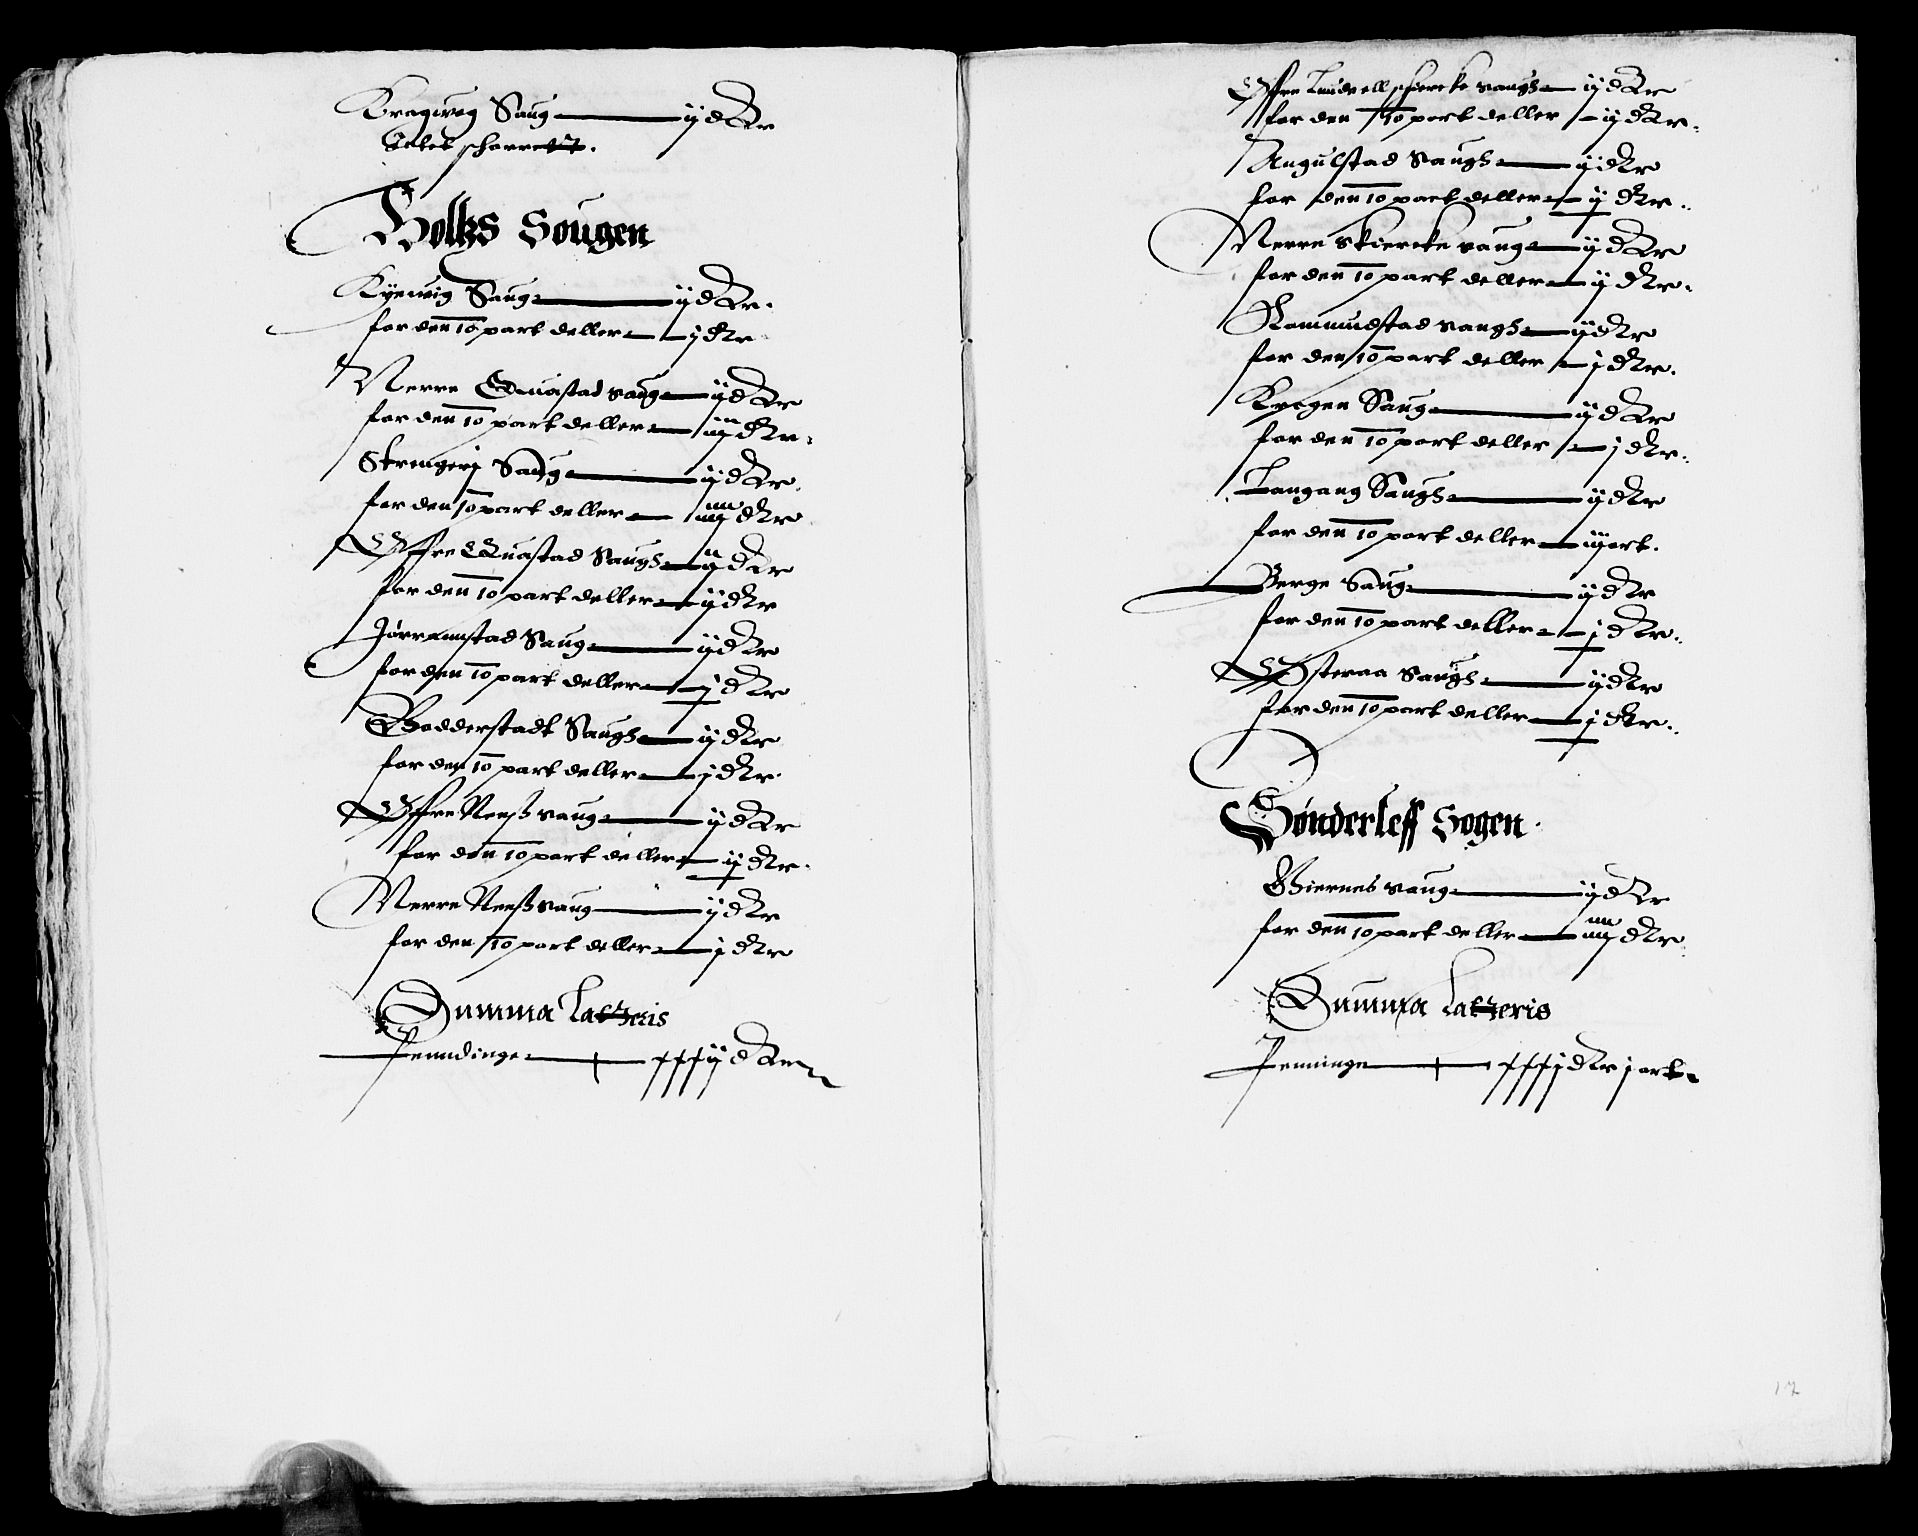 Kragweg Saug ij dlr
Intet schorret.
Holtz Sougen
Kyewig Saug ij dlr.
for den 10 part deller j dlr
Nerre Quastad saug ij dlr
for den 10 part deller iiij dlr.
Strengerj Saug ij dlr.
for den 10 part deller dlr
Øffre Quastad Saugh ij dlr
for den 10 part deller ij dlr
Jørrennstad Saug ij dlr
for den 10 part deller j dlr
Bodderstadt Saugh ij dlr
for den 10 part deller j dlr
Øffre Neeß saug ij dlr
for den 10 part deller ij dlr.
Nerre Neeß saug ij dlr
for den 10 part deller j dlr
Summa Latzeris
Penndinge xxxij dlr
Øffre Lundell schiercke saugh ij dlr
for den 10 part deller ij dlr.
Angulstad Saugh ij dlr
for den 10 part deller ij dlr.
Nerre skiercke saug ij dlr
for den 10 part deller ij dlr.
Rommudstad saugh ij dlr
for den 10 part deller j dlr.
Kragen Saug ij dlr
for den 10 part deller j dlr.
Langang Saugh ij dlr
for den 10 part deller iij ort.
Berge Saug ij dlr
for den 10 part deller j dlr.
Østeraa Saugh ij dlr
for den 10 part deller j dlr.
Sønderleff Sogen.
Giernes saug ij dlr
for den 10 part deller dlr
Summa Latzeris
Penninge xxxj dlr j ort.
17